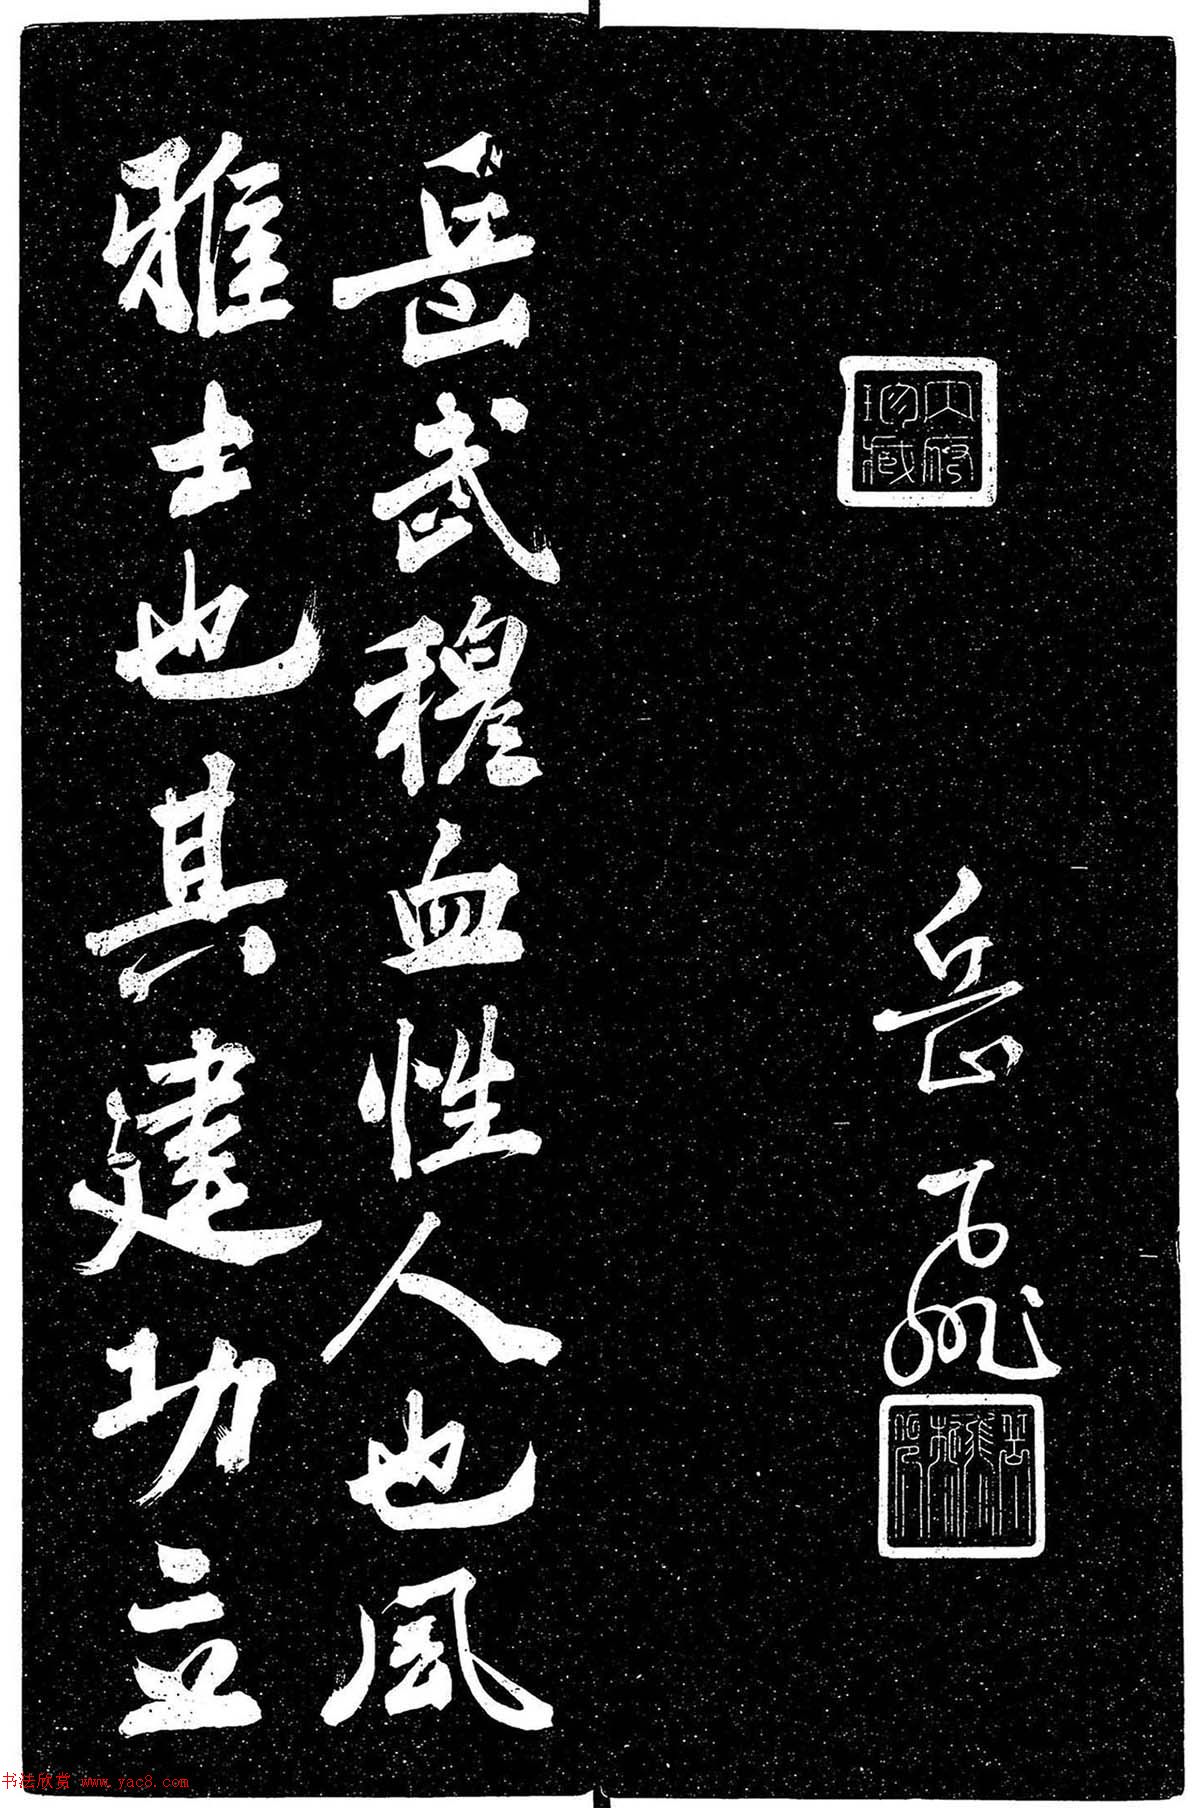 内府
珍藏
岳飛
岳飛
私印
岳武穆血性人也風
雅士也其建功立
书法欣赏 www.yac8.com